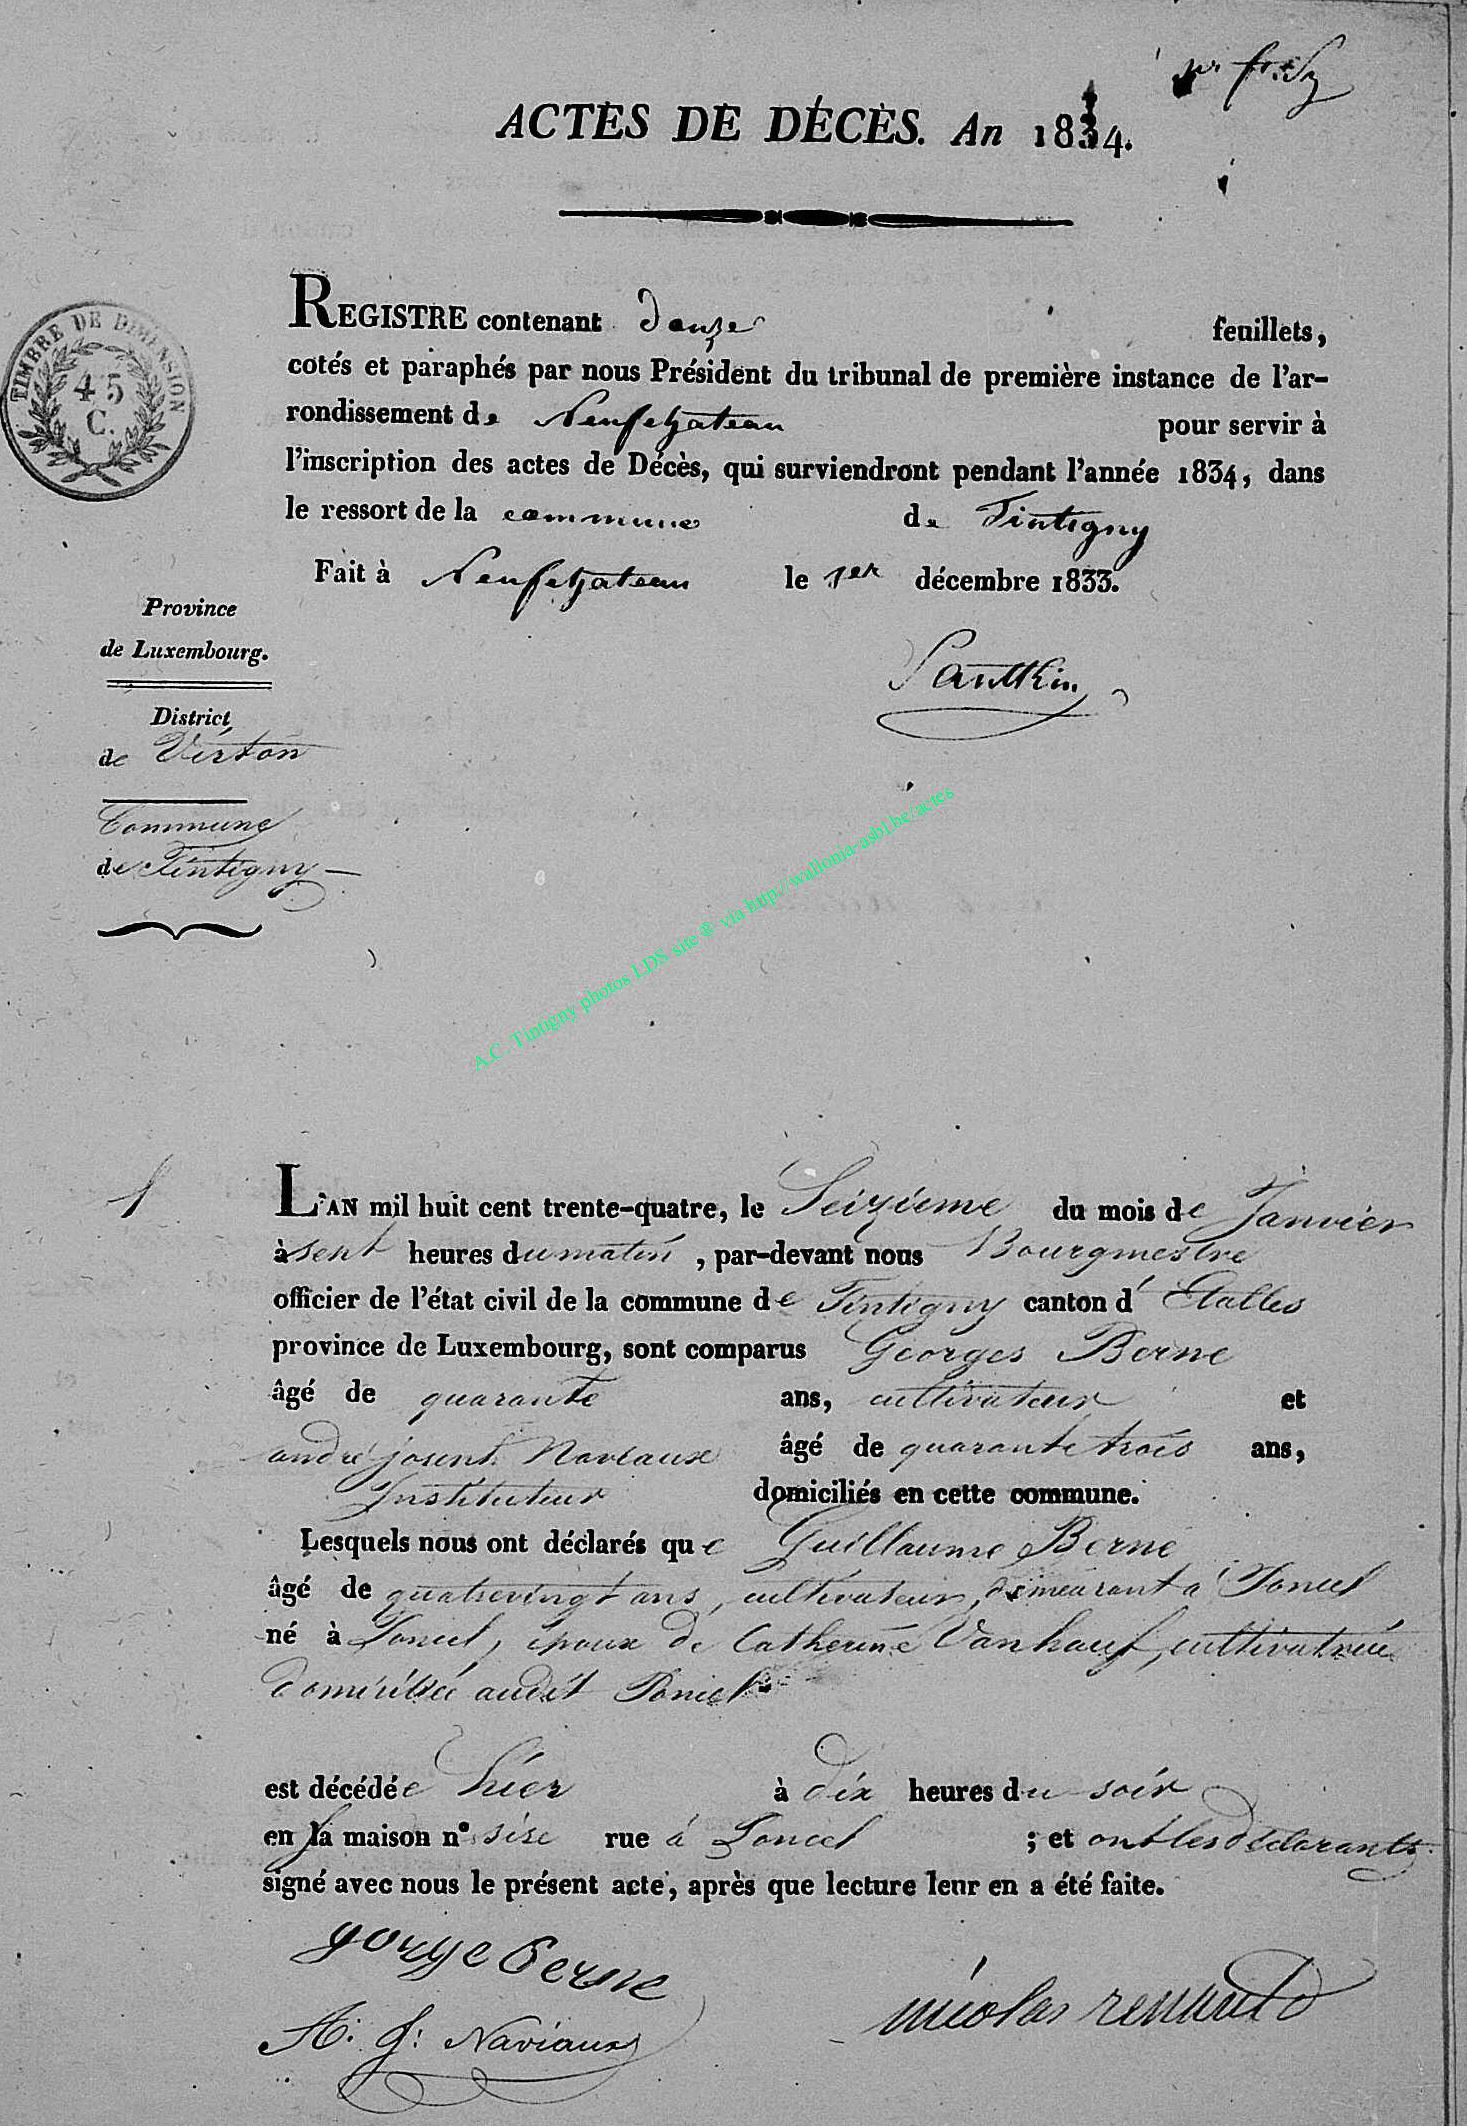 ACTES DE DÉCÈS. An 1834.
TIMBRE DE DIMENSION
45
C.
REGISTRE contenant douze feuillets,
cotés et paraphés par nous Président du tribunal de première instance de l'ar-
rondissement de Neufchateau pour servir à
l'inscription des actes de Décès, qui surviendront pendant l'année 1834, dans
le ressort de la commune de Tintigny
Fait à Neufchateau le 1er décembre 1833.
Province
de Luxembourg.
District
de Virton
Commune
de Tintigny
A.C. Tintigny photos LDS site ® via http://wallonia-asbl.be/actes
1
L'AN mil huit cent trente-quatre, le Seizieme du mois de Janvier
à sept heures du matin, par-devant nous Bourgmestre
officier de l'état civil de la commune de Tintigny canton d'Etalle
province de Luxembourg, sont comparus Georges Berne
âgé de quarante ans, cultivateur et
andré joseph Naviaux âgé de quarante trois ans,
Instituteur domiciliés en cette commune.
Lesquels nous ont déclarés que Guillaume Berne
âgé de quatrevingt ans, cultivateur, demeurant à Poncel
né à Poncel, époux de Catherine Vanhauf, cultivatrice
domiciliée audit Poncel
est décédée hier à dix heures du soir
en la maison n° sise rue à Poncel ; et ont les déclarants
signé avec nous le présent acte, après que lecture leur en a été faite.
gorge Berne
A. J: Naviaux
nicolas renauld